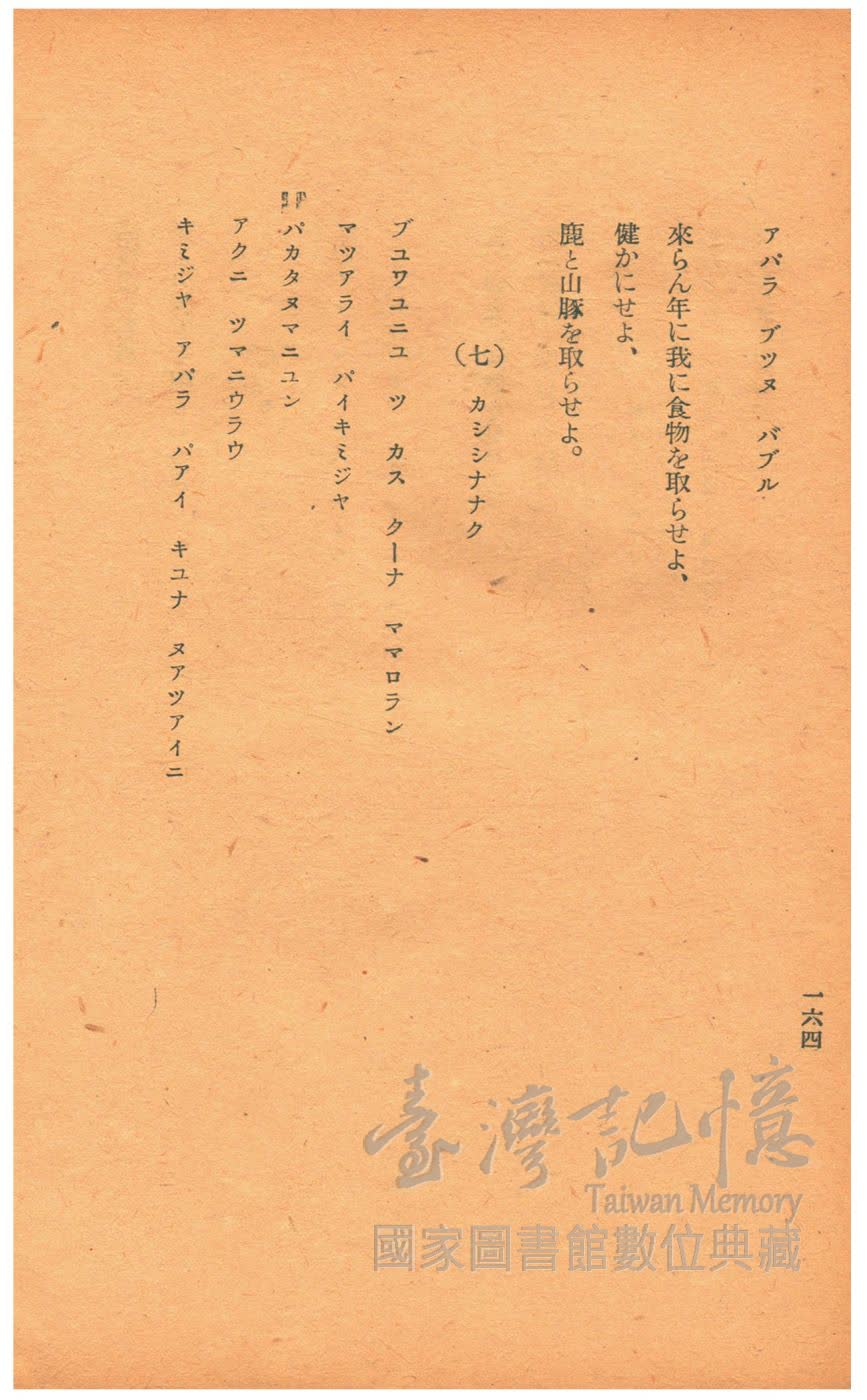 アパラ ブツヌ バブル
來らん年に我に食物を取らせよ、
健かにせよ、
鹿と山豚を取らせよ。
(七) カシシナナク
ブユワユニユ ツ カス クーナ ママロラン
マツアライ パイキミジヤ
パカタヌマニユン
アクニ ツマニウラウ
キミジヤ アパラ パアイ キユナ ヌアツアイニ
一六四
臺灣記憶
Taiwan Memory
國家圖書館數位典藏